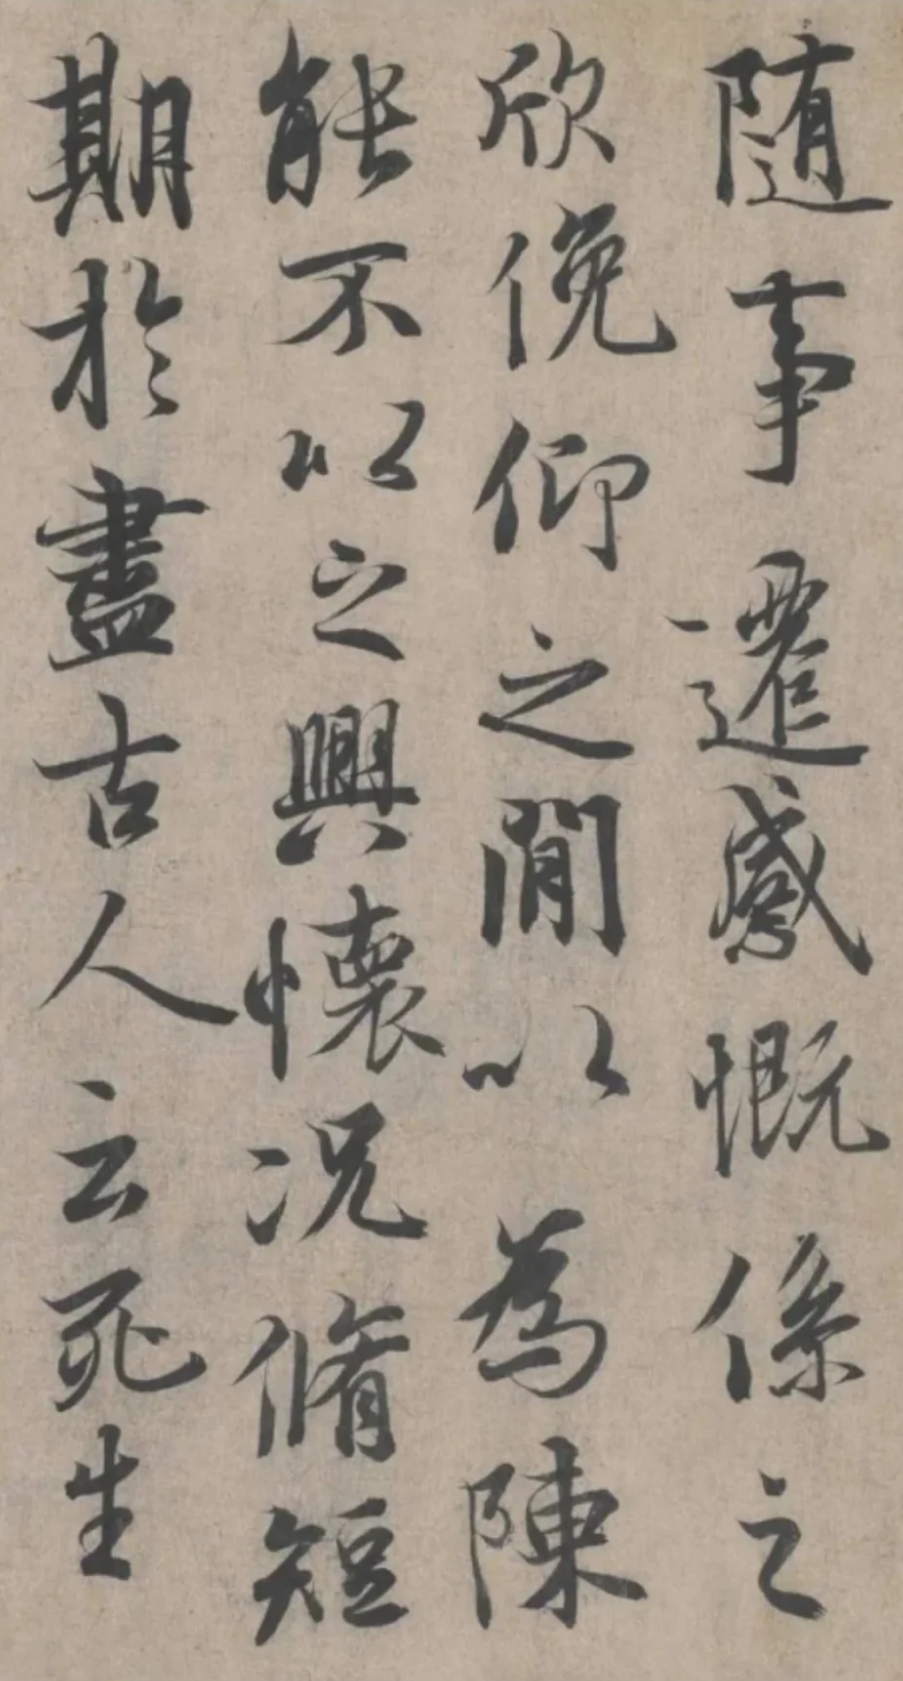 随事遷感慨係之
欣俛仰之間以為陳
能不以之興懷况脩短
期於盡古人云死生